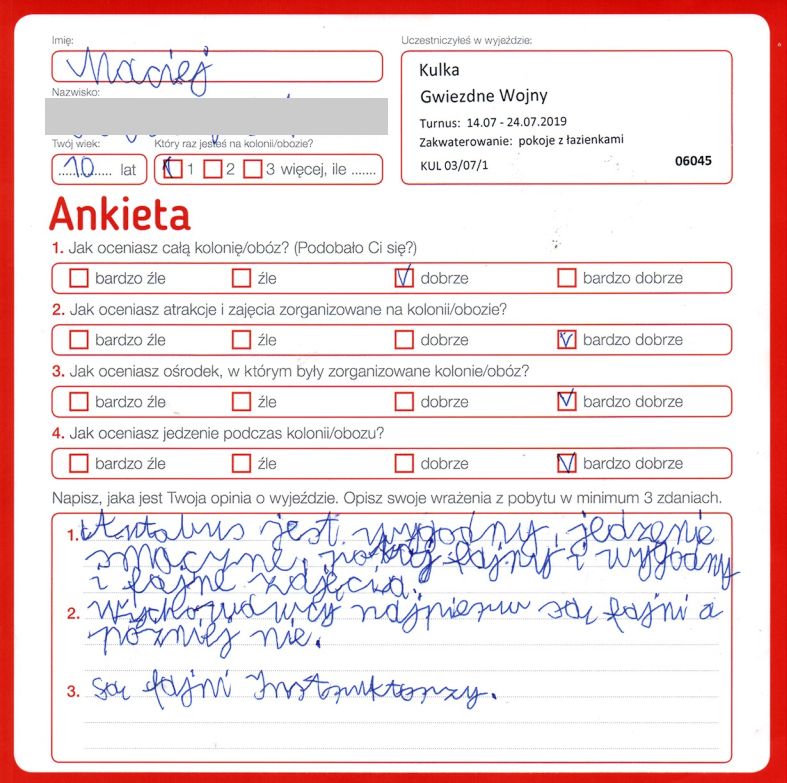 Imię:
Maciej
Nazwisko:
Twój wiek:
10 lat
Który raz jesteś na kolonii/obozie?
1 2 3 więcej, ile .......
Uczestniczyłeś w wyjeździe:
Kulka
Gwiezdne Wojny
Turnus: 14.07 - 24.07.2019
Zakwaterowanie: pokoje z łazienkami
KUL 03/07/1 06045
Ankieta
1. Jak oceniasz całą kolonię/obóz? (Podobało Ci się?)
bardzo źle źle dobrze bardzo dobrze
2. Jak oceniasz atrakcje i zajęcia zorganizowane na kolonii/obozie?
bardzo źle źle dobrze bardzo dobrze
3. Jak oceniasz ośrodek, w którym były zorganizowane kolonie/obóz?
bardzo źle źle dobrze bardzo dobrze
4. Jak oceniasz jedzenie podczas kolonii/obozu?
bardzo źle źle dobrze bardzo dobrze
Napisz, jaka jest Twoja opinia o wyjeździe. Opisz swoje wrażenia z pobytu w minimum 3 zdaniach.
1. Autobus jest wygodny, jedzenie
smaczne, pokój fajny i wygodny
i fajne zdjęcia.
2. Wychowawcy najpierw są fajni a
później nie.
3. są fajni Instruktorzy.